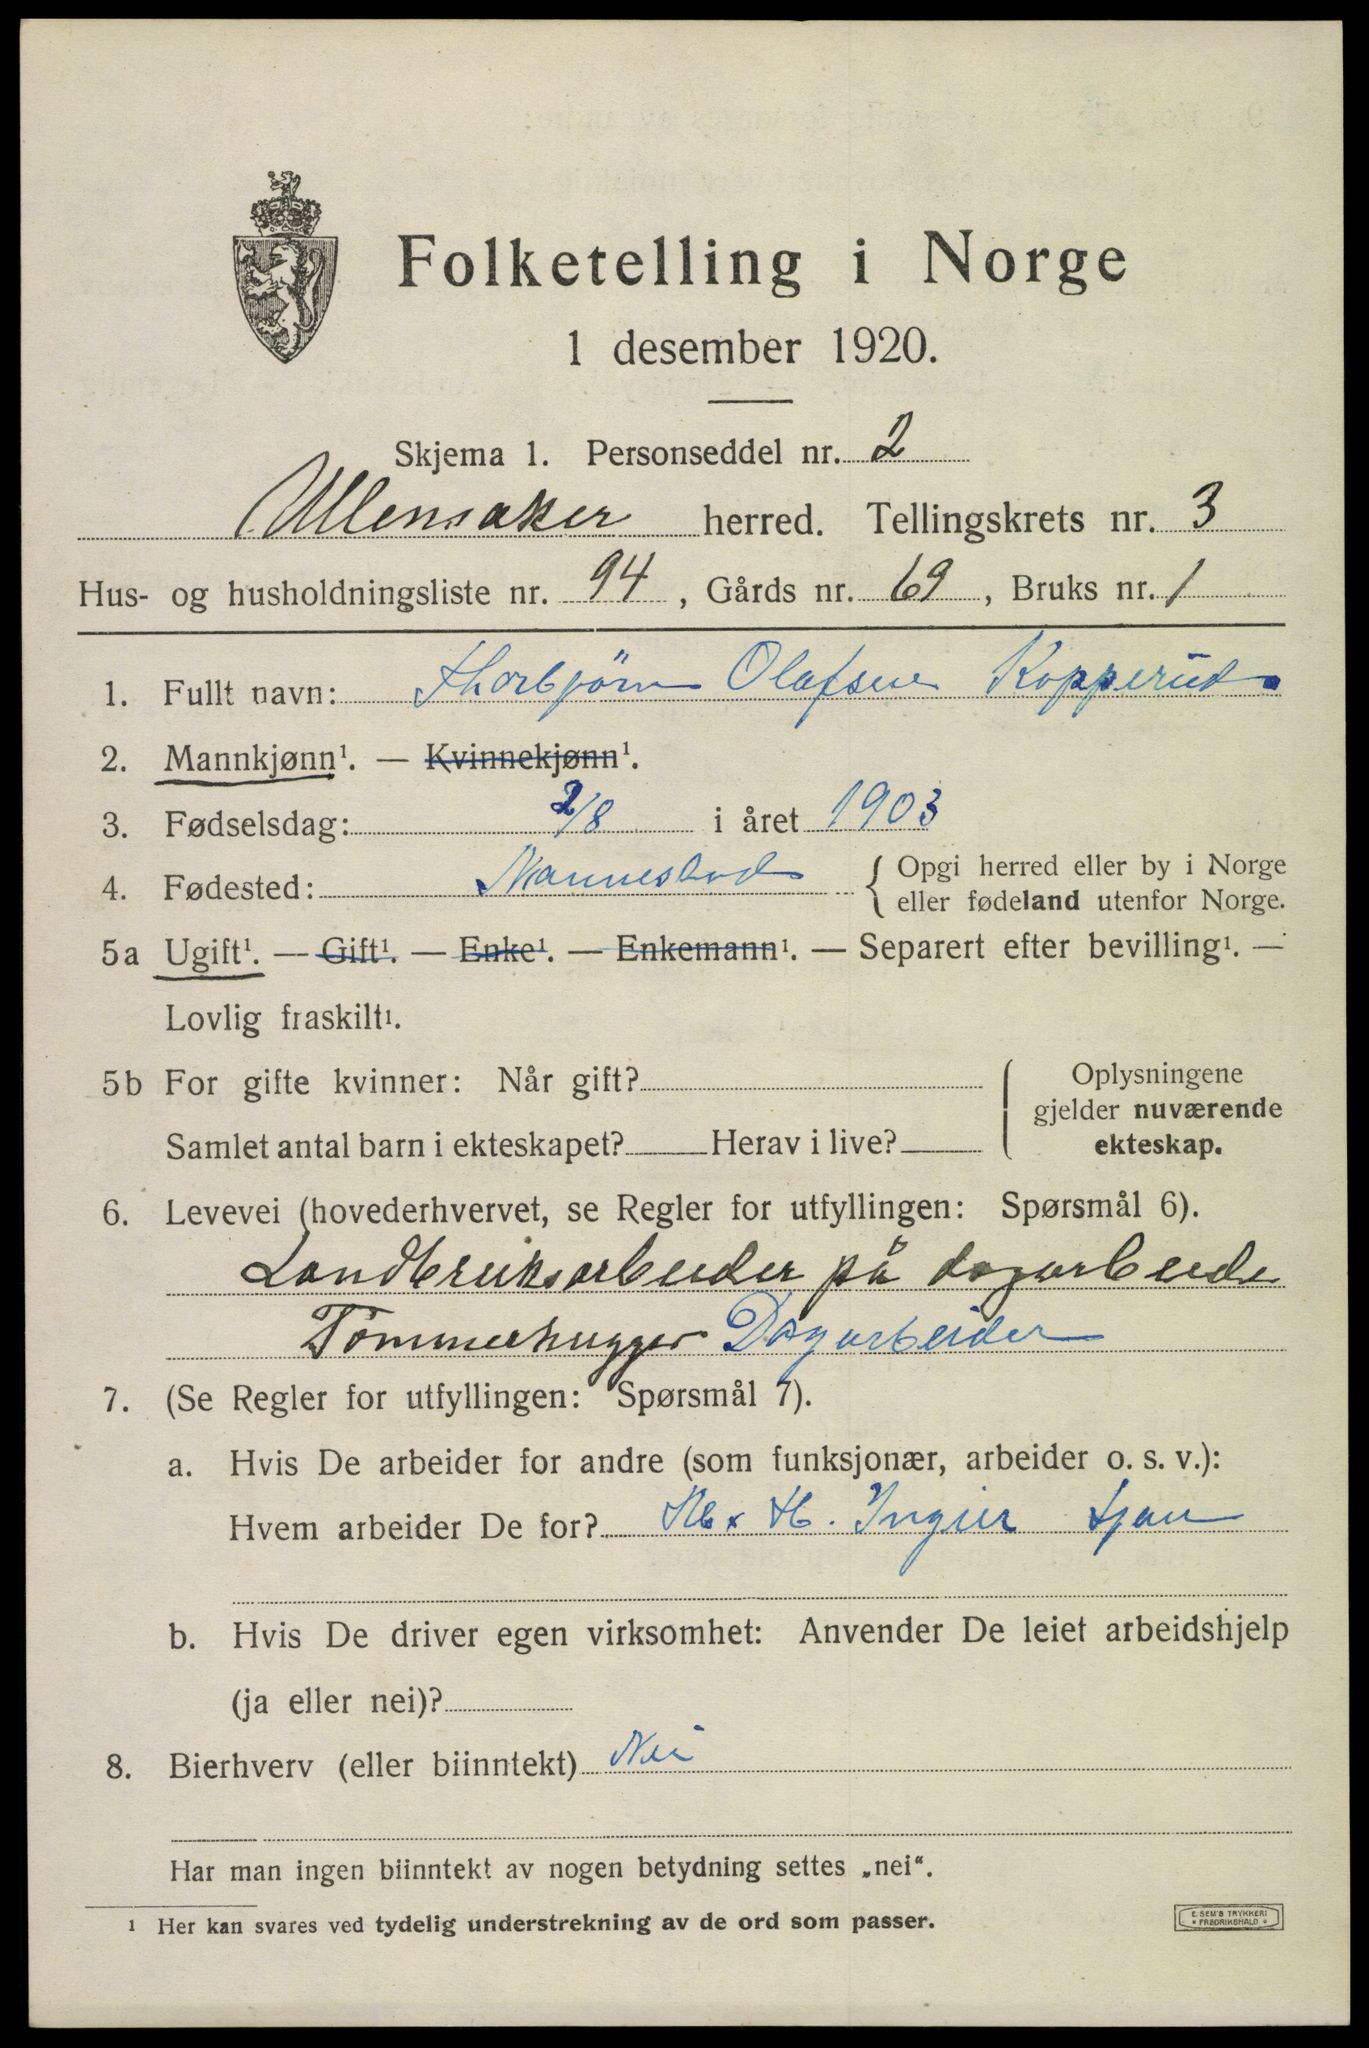 Folketelling i Norge
1 desember 1920.
Skjema 1. Personseddel nr. 2
Ullensaker herred. Tellingskrets nr. 3
Hus- og husholdningsliste nr. 94, Gårds nr. 69, Bruks nr. 1
1. Fullt navn: Thorbjörn Olafsen Kopperud
2. Mannkjønn¹. — Kvinnekjønn¹.
3. Fødselsdag: 2/8 i året 1903
4. Fødested: Nannestad { Opgi herred eller by i Norge
eller fødeland utenfor Norge.
5a Ugift¹. — Gift¹. — Enke¹. — Enkemann¹. — Separert efter bevilling¹. —
Lovlig fraskilt¹.
5b For gifte kvinner: Når gift?
Samlet antal barn i ekteskapet? Herav i live?
Oplysningene
gjelder nuværende
ekteskap.
6. Levevei (hovederhvervet, se Regler for utfyllingen: Spørsmål 6).
Landbruksarbeider på dagarbeide
Tømmerhugger Dagarbeider
7. (Se Regler for utfyllingen: Spørsmål 7).
a. Hvis De arbeider for andre (som funksjonær, arbeider o. s. v.):
Hvem arbeider De for? H. Ingier Ljan
b. Hvis De driver egen virksomhet: Anvender De leiet arbeidshjelp
(ja eller nei)?
8. Bierhverv (eller biinntekt) Nei
Har man ingen biinntekt av nogen betydning settes „nei“.
¹ Her kan svares ved tydelig understrekning av de ord som passer.
E. SEM'S TRYKKERI
• FREDRIKSHALD •